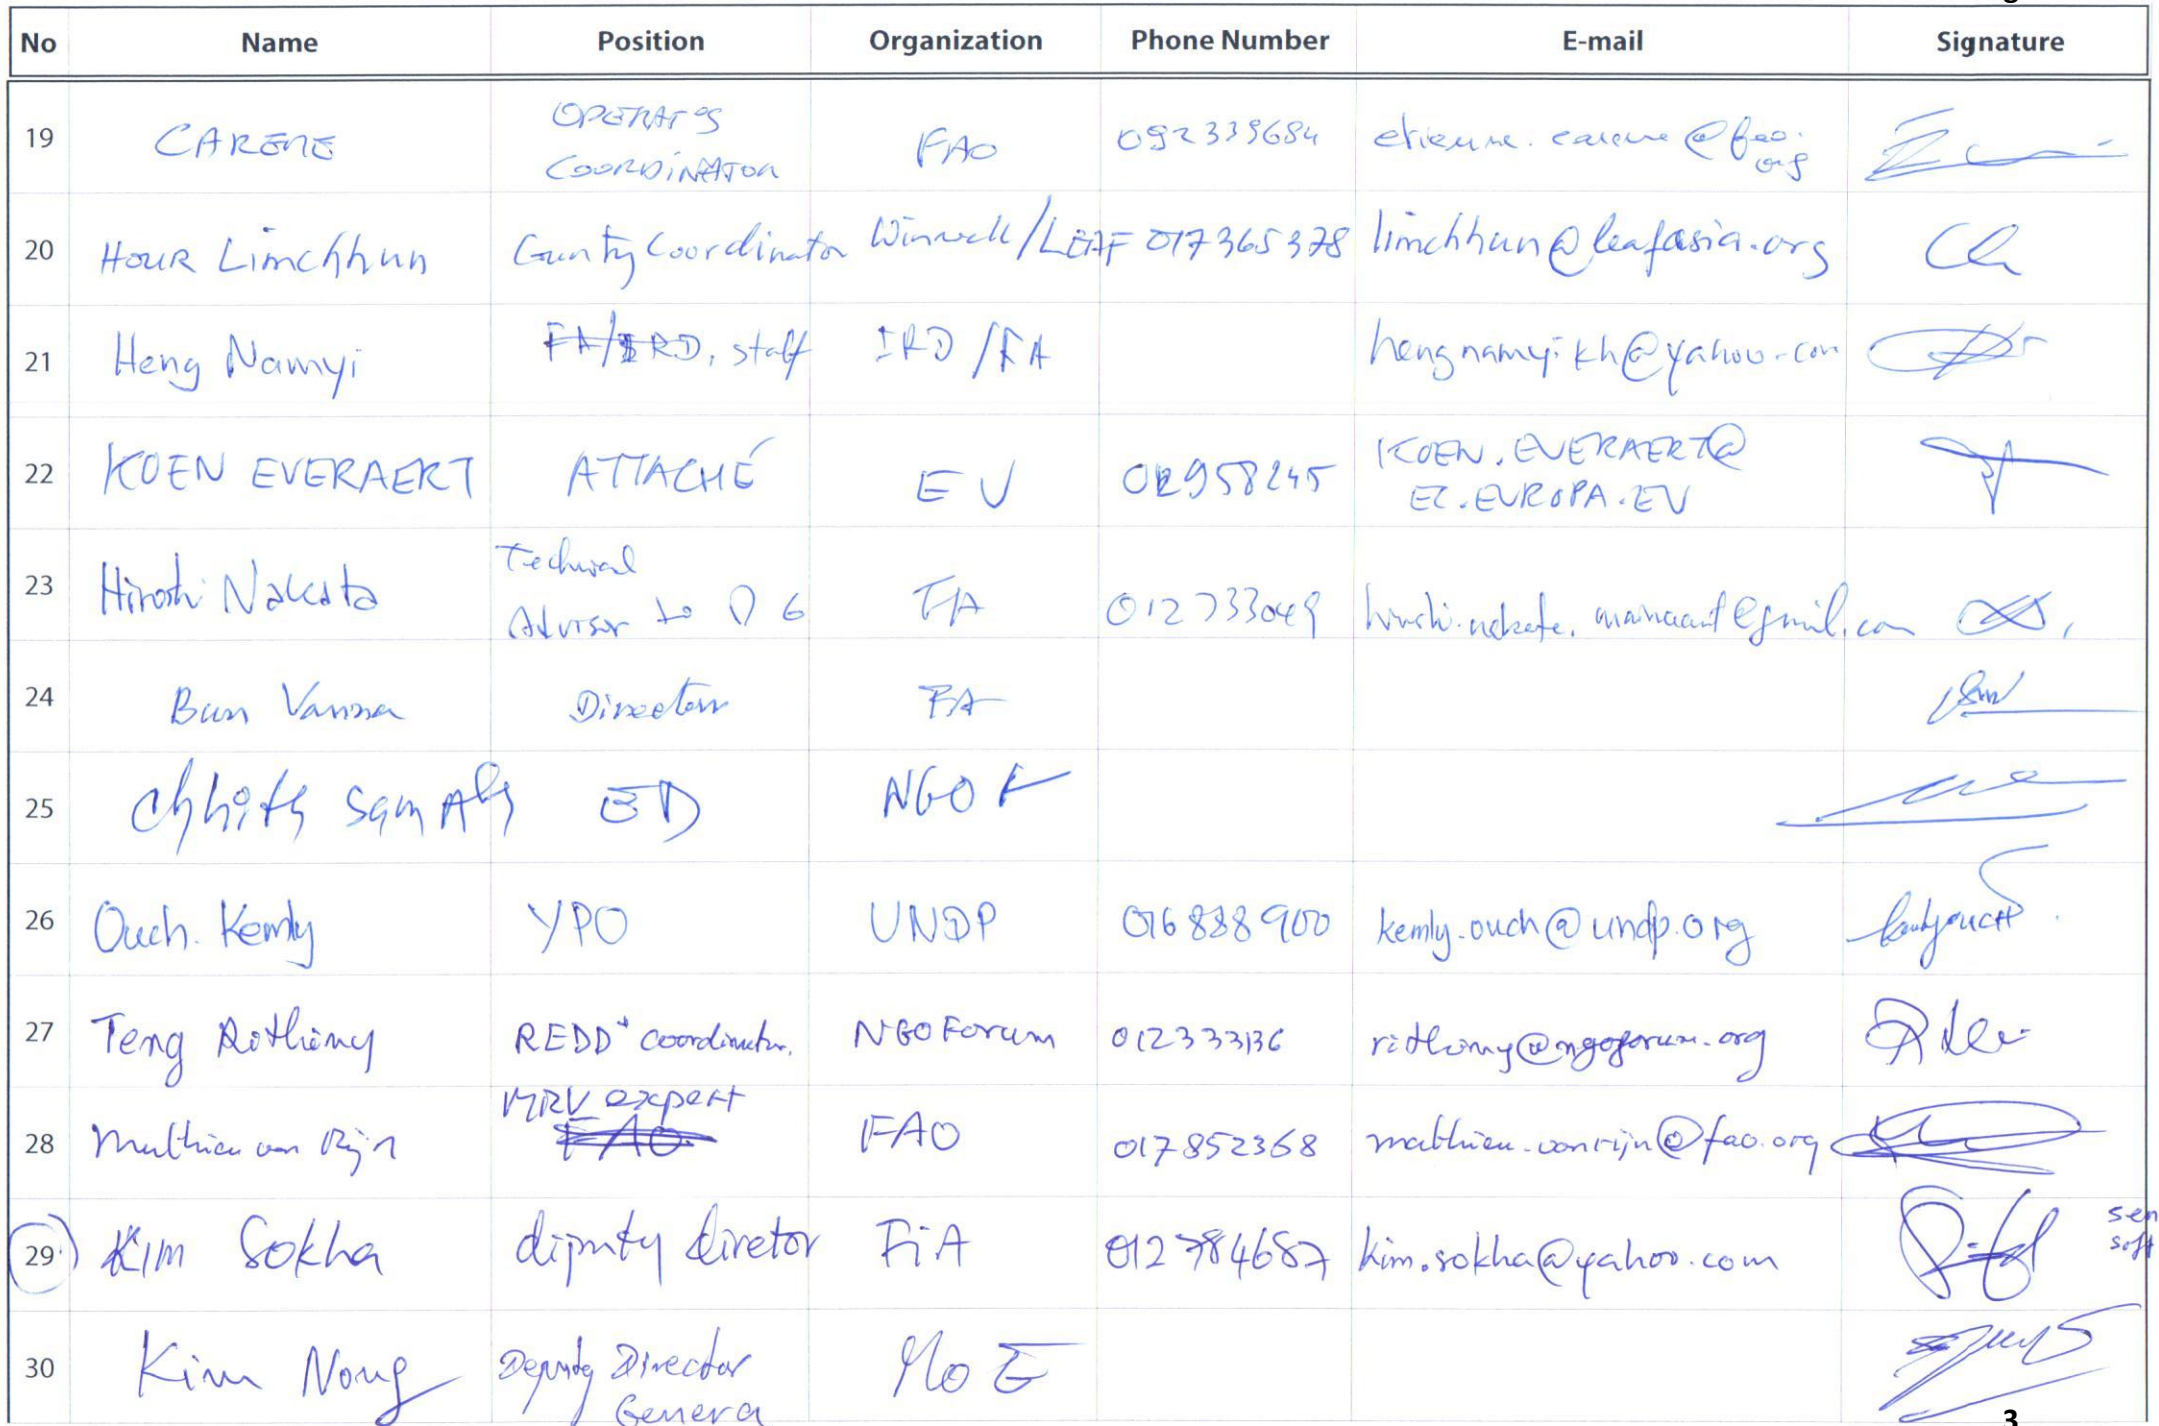 No Name Position Organization Phone Number E-mail Signature
19 CARENE OPERAT°S COORDINATOR FAO 092339684 etienne.carene@fao.org
20 HOUR Limchhun Country Coordinator Winrock/LEAF 017365378 limchhun@leafasia.org
21 Heng Namyi FA/IRD, staff IRD/FA hengnamyi.kh@yahoo.com
22 KOEN EVERAERT ATTACHÉ EU 012958245 KOEN.EVERAERT@
EC.EUROPA.EU
23 Hiroshi Nakata Technical
Advisor to FA 012733049
24 Bun Vanna Director FA
25 Chhith Sam Ath ED NGO F
26 Ouch. Kemly YPO UNDP 016888900 kemly.ouch@undp.org
27 Teng Rithiny REDD+ coordinator. NGO Forum 012333136 rithiny@ngoforum.org
28 Mathieu van Rijn MRV expert FAO FAO 017852368 mathieu.vanrijn@fao.org
29 KIM Sokha diputy diretor FiA 012784687 kim.sokha@yahoo.com
30 Kim Nong Deputy Director
Genera MoE
3